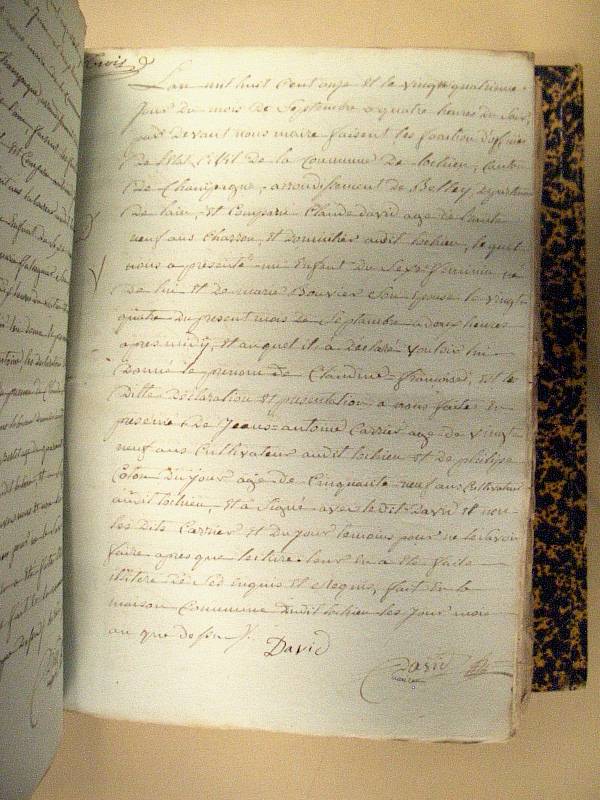 trois
L'an mil huit cent onze et le vingt quatrieme
jour du mois de Septembre a quatre heures du Soir,
par devant nous maire faisent les fonction d'officier
de l'etat Civil de la Commune de lochieu, Canton
de Champagne, arrondissement de Belley, departement
de lain, est Comparu Claude david age de trente
neuf ans Charron, et domicilier audit lochieu, lequel
nous a presenté un Enfant du Sexe feminin né
de lui et de marie Bouvier Son Epouse le vingt
quatre du present mois de Septembre a deux heures
apres midy, et auquel il a declaré vouloir lui
donné le prenom de Claudine francoise, et le
ditte declaration et presentation a nous faite En
presence de Jeans=antoine Carrier age de vingt
neuf ans Cultivateur audit lochieu et de philipe
Coton Dujour agé de Cinquante neuf ans Cultivateur
audit lochieu, et a Signé avec le dit David et non
les dits Carrier et Dujour temoins pour ne le Savoir
faire apres que lecture leur En a ete faite
de Ses Enquis et Requis, fait En la
maison Commune dudit lochieu les jour mois
an que dessus
David
David
maire